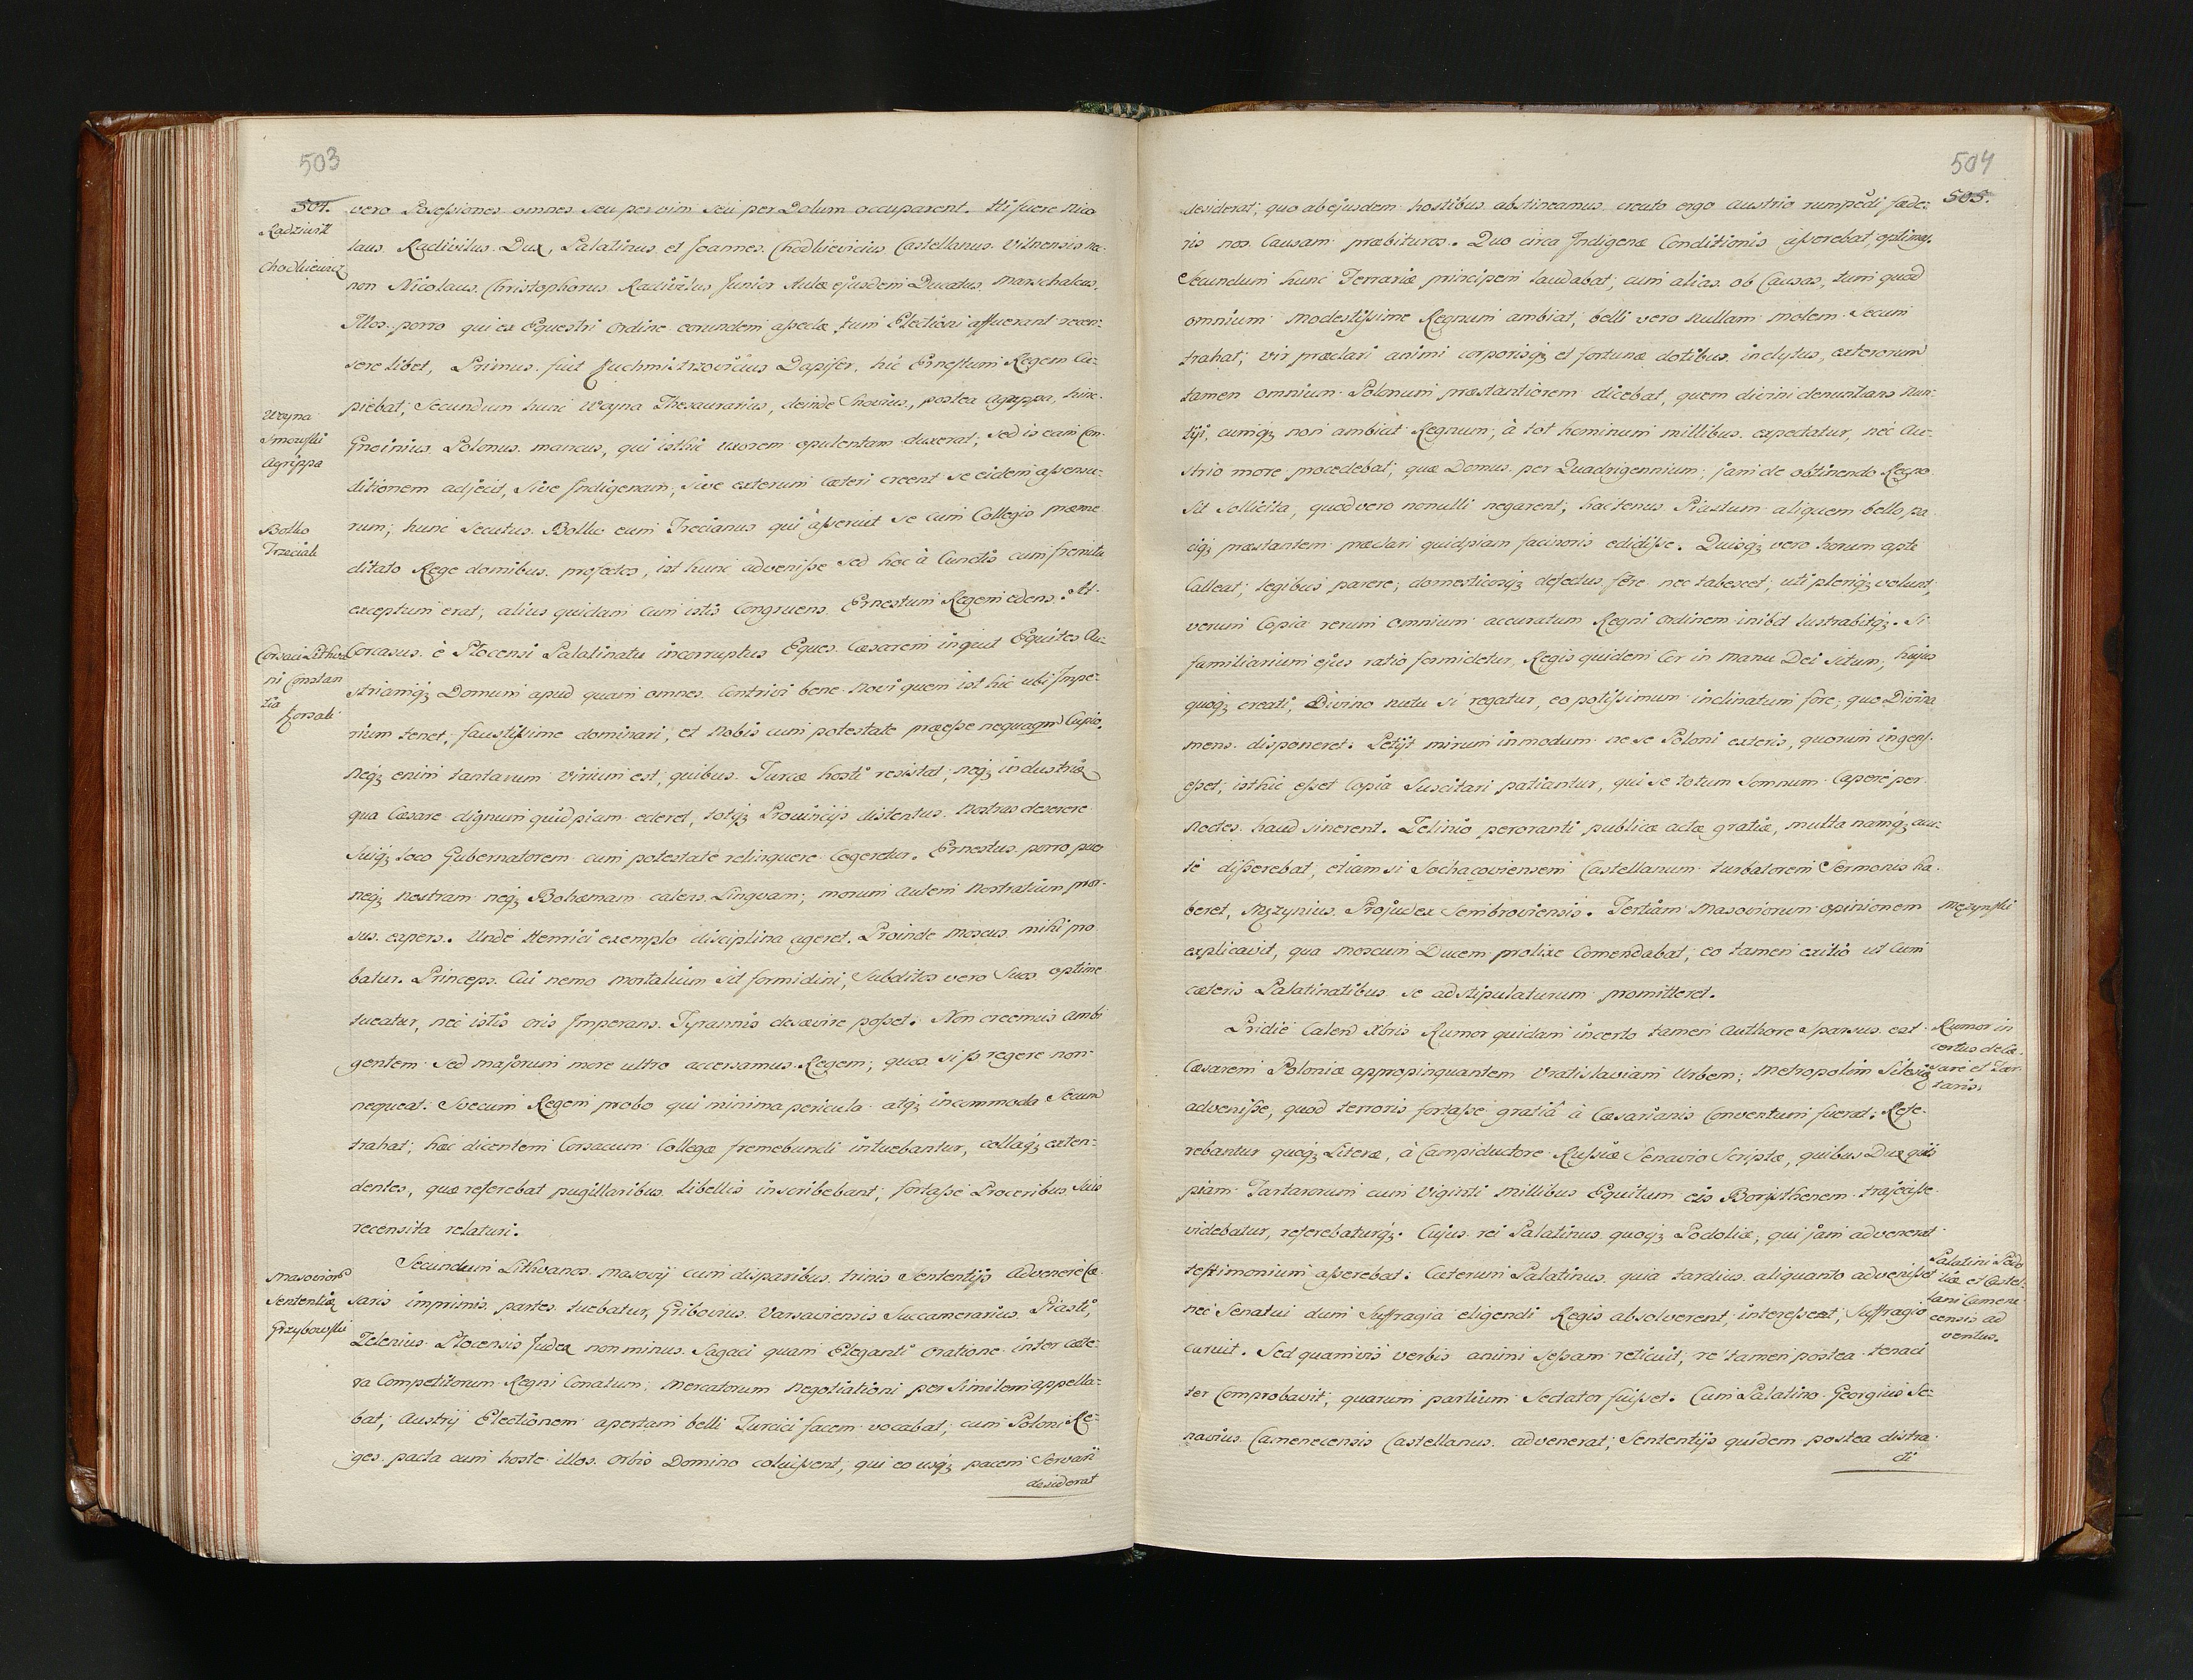 503
504.
vero Posessiones omnes seu per vim seu per Dolum occuparent. Hi fuere Nico
Radziwill
laus Radivilus Dux, Palatinus et Joannes Chodkievicius Castellanus Vilnensis nec
Chodkiewicz
non Nicolaus Christophorus Radivilus Junior Aulæ ejusdem Ducatus Marschalcus.
Illos porro qui ex Equestri Ordine eorundem asseclæ tum Electioni affuerant recen-
sere libet, Primus fuit Kuchmistrzovicius Dapifer, hic Ernestum Regem Cu-
piebat; Secundum hunc Woyna Thesaurarius, deinde Chovius, postea Agrippa, hinc
Woyna
Smowski
Agrippa
Gneinius Polonus mancus, qui isthic uxorem opulentam duxerat; sed is eam Con-
ditionem adjecit, sive Indigenam, sive exterum cæteri creent se eidem assensu-
rum; hunc Secutus Bolko cum Trecianus qui asseruit se cum Collegio præme
Bolko
Trzeciak
ditato Rege domibus profectos, ist hunc advenisse sed hoc à Cunctis cum fremitu
exceptum erat; alius quidam cum istis Congruens Ernestum Regem edens. At
Corsacus è Plocensi Palatinatu incorruptus Eques. Cæsarem inquit Equites Au-
Corsaci Lithua
ni Constan
tia
Korsak
striamq; Domum apud quam omnes contrivi bene novi quem ist hic ubi Impe-
rium tenet, faustissime dominari, et Nobis cum potestate præesse nequaqm Cupio.
Neq; enim tantarum virium est, quibus Turcæ hosti resistat, neq; industriæ
qua Cæsare dignum quidpiam ederet, totq; Provincijs distentus Nostras deserere
Suiq; loco Gubernatorem cum potestate relinquere Cogeretur. Ernestus porro puer
neq; nostram neq; Bohæmam calens Linguam; morum autem Nostratium pror-
sus expers. Unde Henrici exemplo disciplina ageret. Proinde Moscus mihi pro
batur. Princeps Cui nemo Mortalium sit formidini, Subditos vero Suos optime
tueatur, nec istis oris Imperans Tyrannis desævire posset. Non creemus ambi
gentem Sed majorum more ultro accersamus Regem; quos si ß regere non
nequeat. Svecum Regem probo qui minima pericula atq; incommoda Secum
trahat; hæc dicentem Corsacum Collegæ fremebundi intuebantur, collaq; exten-
dentes, quæ referebat pugillaribus libellis inscribebant; fortasse Proceribus suis
recensita relaturi.
Secundum Lithvanos Masovij cum disparibus trinis Sententijs advenere Cæ-
Masoviorũ
Sententiæ
Grzybowski
saris imprimis partes tuebatur, Gribovius Varsaviensis Succamerarius. Piasti,
Zelenius Plocensis Judex non minus Sagaci quam Eleganti oratione inter cæte-
ra Competitorum Regni Conatum, Mercatorum Negotiationi persimilem appella-
bat; Austrij Electionem apertam belli Turcici facem vocabat; cum Poloni Re-
ges pacta cum hoste illos Orbis Domino coluissent, qui eo usq; pacem Servari
desiderat
504
505.
desiderat, quo ab ejusdem hostibus abstineamus creato ergo Austrio rumpẽdi fæde-
ris nos Causam præbituros. Quo circa Indigenæ Conditionis asserebat optimas
Secundum hunc Ferrariæ principem laudabat; cum alias ob Causas, tum quod
omnium Modestissime Regnum ambiat, belli vero nullam molem Secum
trahat; vir præclari animi corporisq; et fortunæ dotibus inclytus, exterorum
tamen omnium Polonum præstantiorem dicebat, quem divini denuntians nun-
tiji, cumq; non ambiat Regnum, à tot hominum millibus expectatur, nec Au-
strio more procedebat; quæ Domus per Quadrigennium, jam de obtinendo Regno
Sit Sollicita, quod vero nonulli negarent; hactenus Piastum aliquem bello, pa
ciq; præstantem præclari quidpiam facinoris edidisse. Quisq; vero horum apte
Calleat, legibus parere; domesticorq; defectus fere nec tabescet; uti pleriq; volunt,
verum Copia rerum omnium accuratum Regni Ordinem inibit lustrabitq;. Si
familiarium ejus ratio formidetur, Regis quidem Cor in manu Dei situm, hujus
quoq; creati, Divino nutu si regatur, eo potissimum inclinatum fore, quo Divina
mens disponeret. Petijt mirum inmodum ne se Poloni exteris, quorum ingens
esset, isthic esset Copia Suscitari patiantur, qui se totum Somnum Capere per
Noctes haud sinerent. Zelinio peroranti publicæ actæ gratiæ, multa namq; acu-
te disserebat, etiam si Sochacoviensem Castellanum turbatorem Sermonis ha-
beret, Mązynius Projudex Sembroviensis. Tertiam Masoviorum opinionem
Mązynski
explicavit, qua Moscum Ducem prolixe Comendabat, eo tamen exitio ut Cum
cæteris Palatinatibus se adstipulaturum promitteret.
Pridie Calend Xbris Rumor quidam incerto tamen Authore sparsus est
Rumor in
certus de Cæ-
sare et Tar-
taris.
Cæsarem Poloniæ appropinquantem Vratislaviam Urbem, Metropolim Silesiæ
advenisse, quod terroris fortasse gratiâ à Cæsarianis Conventum fuerat. Refe-
rebantur quoq; Literæ, à Campiductore Russiæ Senavio Scriptæ, quibus Dux quis
piam Tartarorum cum Viginti Millibus Equitum cis Boristhenem trajecisse
videbatur, referebaturq;. Cujus rei Palatinus quoq; Podoliæ, qui jam advenerat
testimonium asserebat: Cæterum Palatinus quia tardius aliquanto advenisset
Palatini Podo
liæ et Castel-
lani Camene
censis ad
ventus.
nec Senatui dum Suffragia eligendi Regis absolverent, interesset, Suffragio
caruit. Sed quamvis verbis animi sessam reticuit, re tamen postea tenaci
ter Comprobavit, quarum partium Sectator fuisset. Cum Palatino Georgius Se-
navius Camenecensis Castellanus advenerat, Sententijs quidem postea distra-
cti